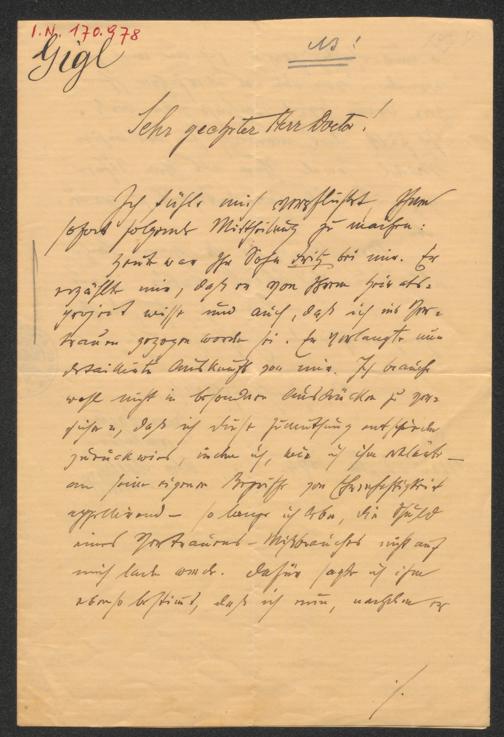 I.N. 170.978
Gigl
Sehr geehrter Herr Doctor!
Ich fühle mich verpflichtet, Ihnen
sofort folgende Mittheilung zu machen:
Heute war Ihr Sohn Fritz bei mir. Er
erzählte mir, daß er von Ihrem
wisse und auch, daß ich ins Ver-
trauen gezogen worden sei. Er verlangte nun
detaillirte Auskunft von mir. Ich brauche
wohl nicht in besonderen Ausdrücken zu ver-
sichern, daß ich diese Zumuthung entschieden
zurückwies, indem ich, wie ich ihm erklärte —
an seine eigenen Begriffe von Ehrenhaftigkeit
appellirend — so lange ich lebe, die Schuld
eines Vertrauens-Mißbrauches nicht auf
mich laden werde. Dafür sagte ich ihm
ebenso bestimmt, daß ich nun, nachdem er
./.